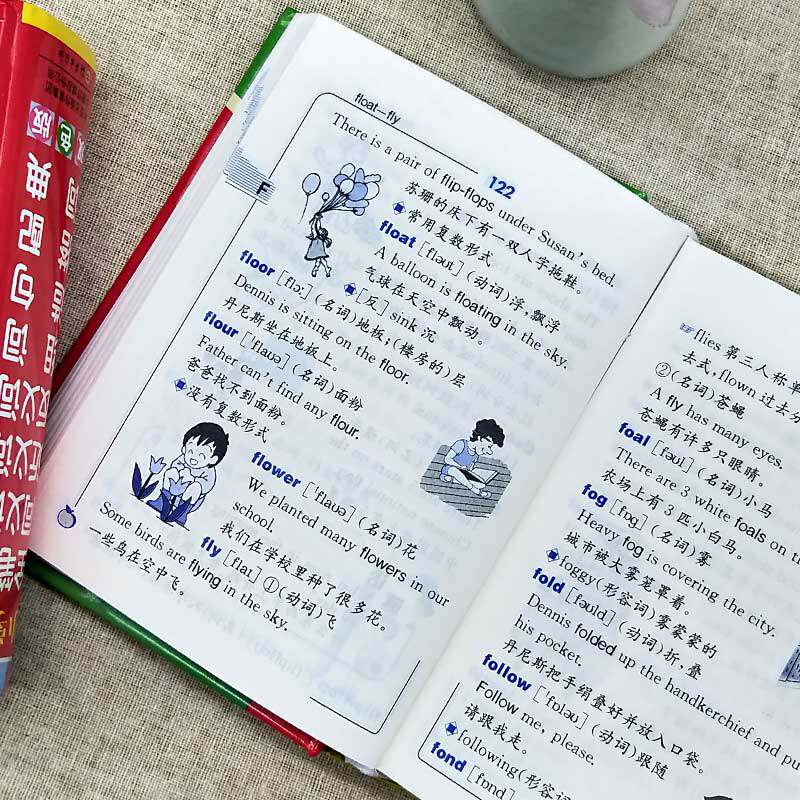 float—fly
122
F
There is a pair of flip-flops under Susan's bed.
苏珊的床下有一双人字拖鞋。
常用复数形式
float [fləʊt] (动词)浮,飘浮
A balloon is floating in the sky.
气球在天空中飘动。
[反] sink 沉
floor [flɔː] (名词)地板;(楼房的)层
Dennis is sitting on the floor.
丹尼斯坐在地板上。
flour ['flaʊə] (名词)面粉
Father can't find any flour.
爸爸找不到面粉。
没有复数形式
flower ['flaʊə] (名词)花
We planted many flowers in our
school.
我们在学校里种了很多花。
fly [flaɪ] ①(动词)飞
Some birds are flying in the sky.
一些鸟在空中飞。
flies 第三人称单
去式,flown 过去分
②(名词)苍蝇
A fly has many eyes.
苍蝇有许多只眼睛。
foal [fəʊl] (名词)小马
There are 3 white foals on th
农场上有3匹小白马。
fog [fɒg] (名词)雾
Heavy fog is covering the city.
城市被大雾笼罩着。
foggy(形容词)雾蒙蒙的
fold [fəʊld] (动词)折,叠
Dennis folded up the handkerchief and pu
his pocket.
丹尼斯把手绢叠好并放入口袋。
follow ['fɒləʊ] (动词)跟随
Follow me, please.
请跟我走。
following(形容词)
fond [fɒnd]